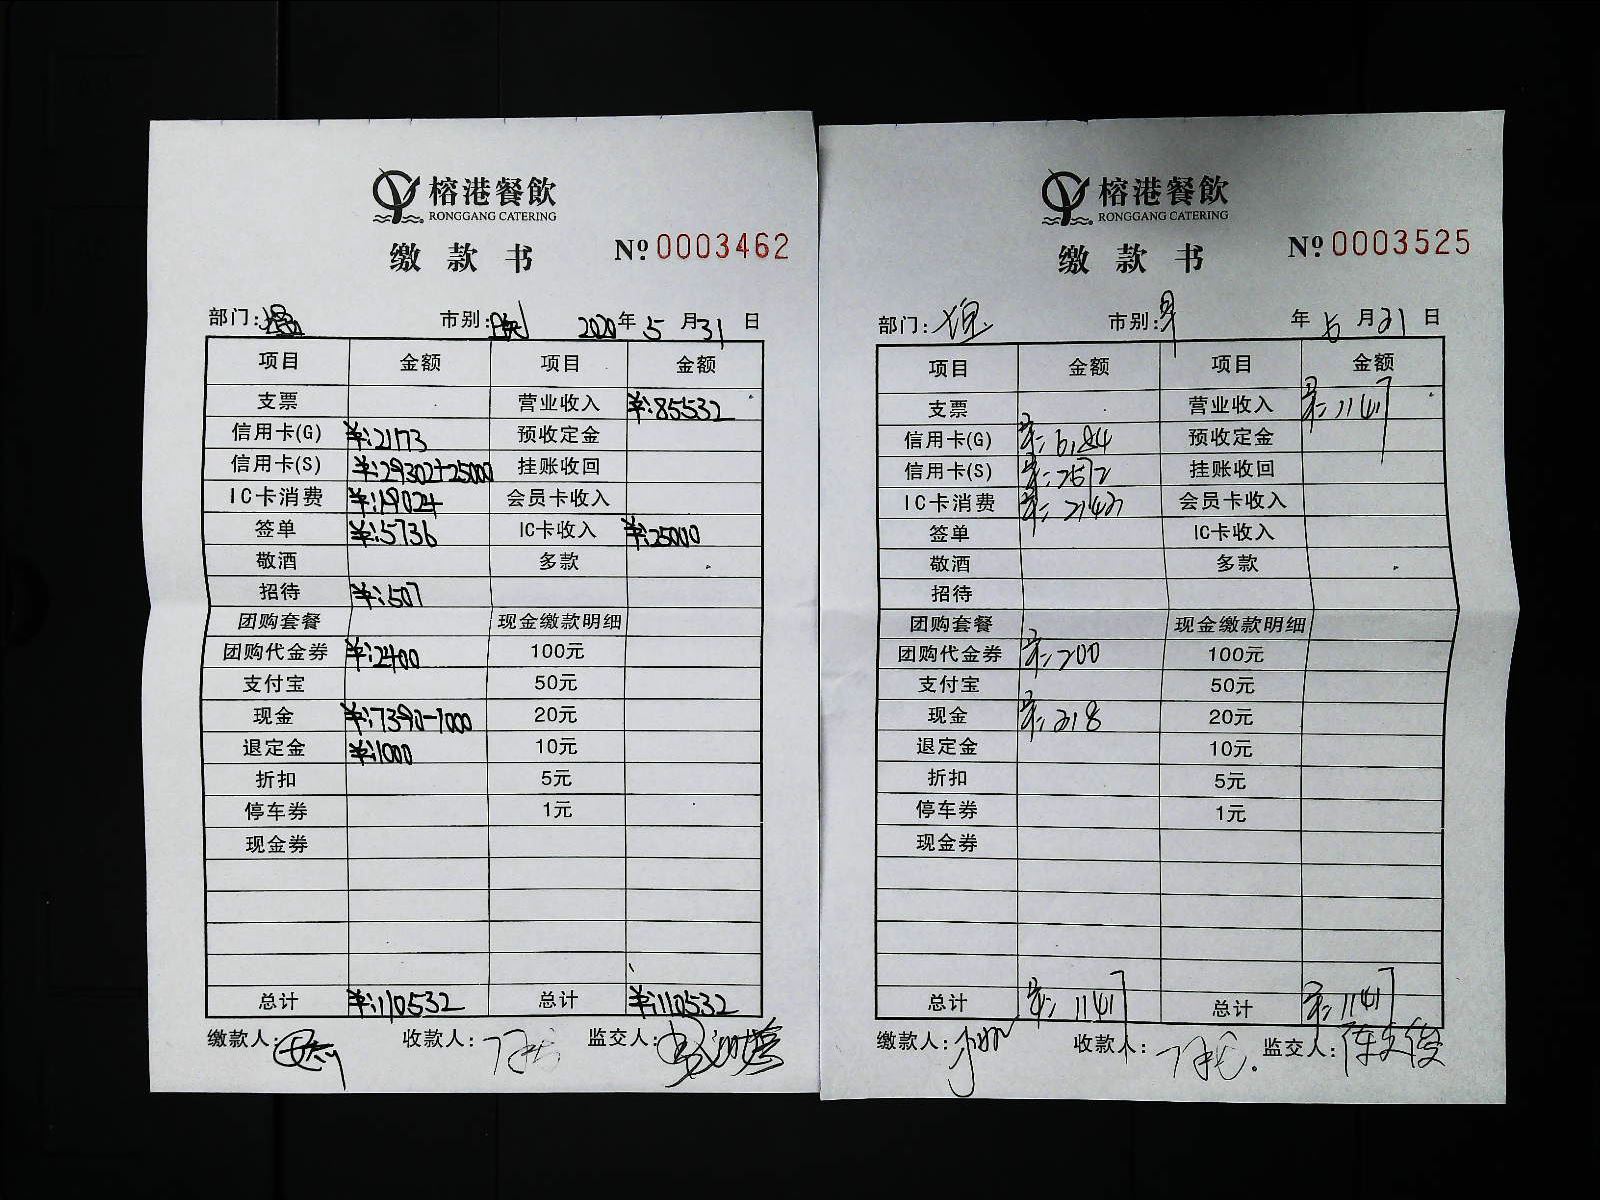 榕港餐飲
RONGGANG CATERING
缴款书 № 0003462
部门: 市别:晚 2020年5月31日
项目 金额 项目 金额
支票 营业收入 ¥:85532
信用卡(G) ¥:21173 预收定金
信用卡(S) ¥:29302+25000 挂账收回
IC卡消费 ¥:19024 会员卡收入
签单 ¥:5736 IC卡收入 ¥:25000
敬酒 多款
招待 ¥:507
团购套餐 现金缴款明细
团购代金券 ¥:2400 100元
支付宝 50元
现金 ¥:7390-1000 20元
退定金 ¥:1000 10元
折扣 5元
停车券 1元
现金券
总计 ¥:110532 总计 ¥:110532
缴款人: 收款人: 监交人:
榕港餐飲
RONGGANG CATERING
缴款书 № 0003525
部门: 市别:早 年5月31日
项目 金额 项目 金额
支票 营业收入 ¥:11417
信用卡(G) ¥:6184 预收定金
信用卡(S) ¥:2572 挂账收回
IC卡消费 ¥:2143 会员卡收入
签单 IC卡收入
敬酒 多款
招待
团购套餐 现金缴款明细
团购代金券 ¥:200 100元
支付宝 50元
现金 ¥:318 20元
退定金 10元
折扣 5元
停车券 1元
现金券
总计 ¥:11417 总计 ¥:11417
缴款人: 收款人: 监交人:陈文俊